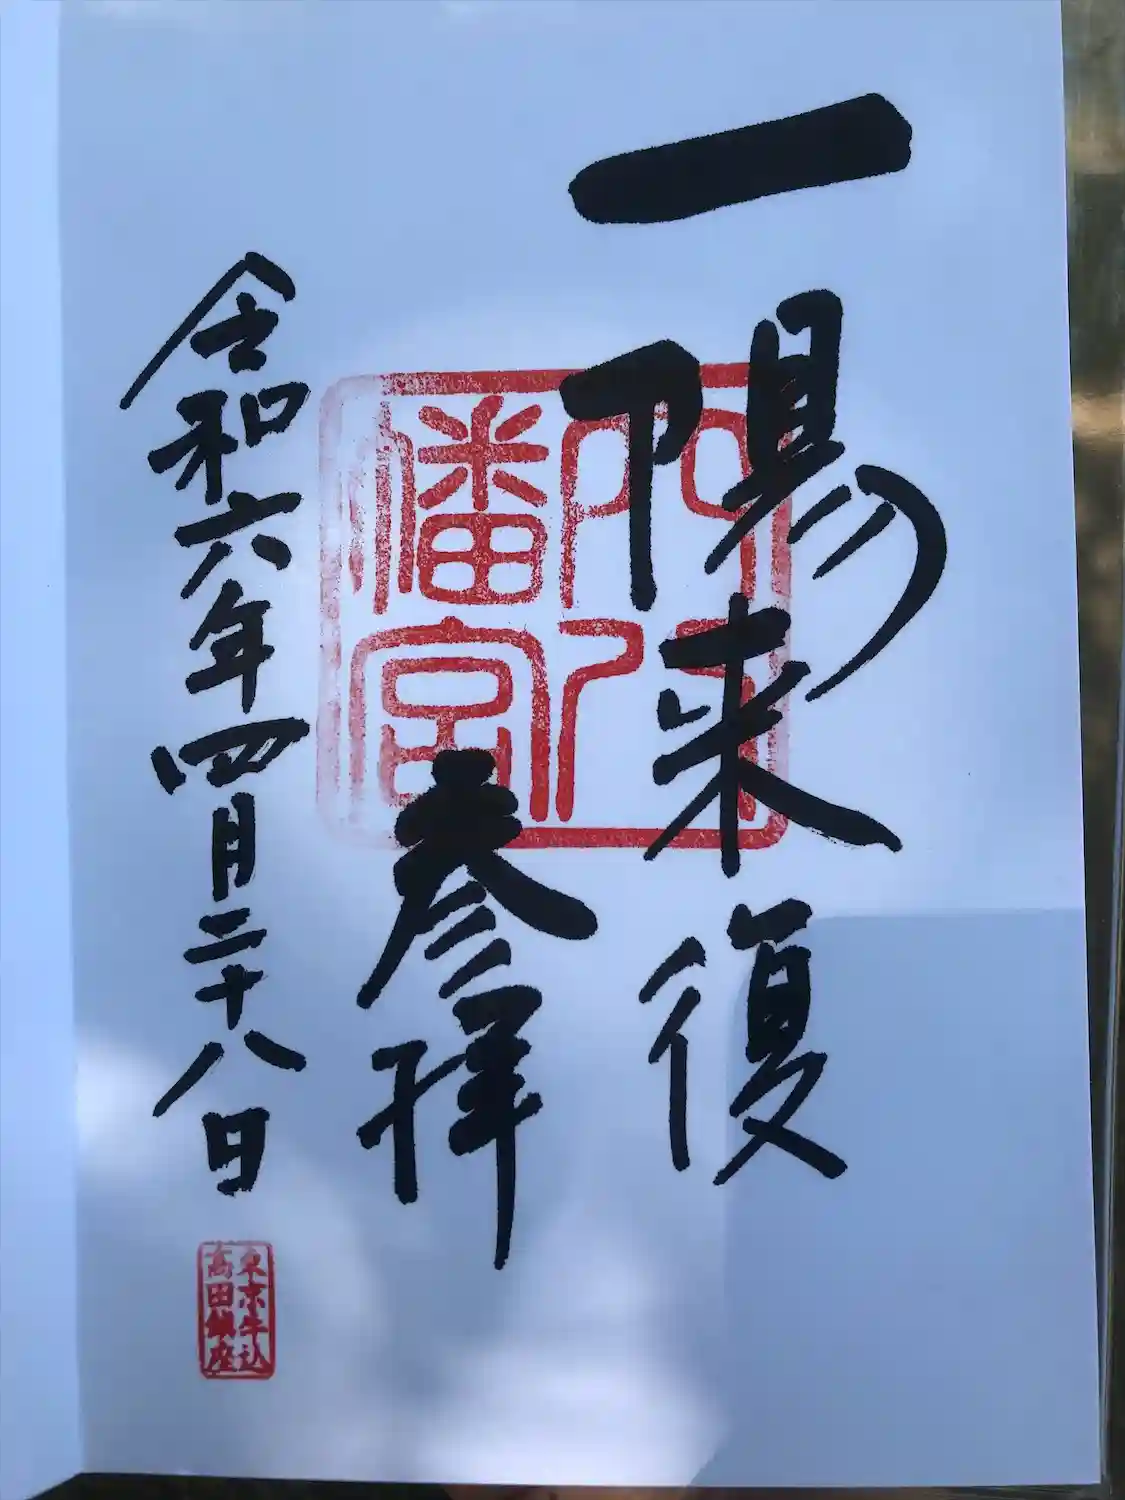 一陽来復
参拝
令和六年四月二十八日
穴八
幡宮
東京牛込
高田鎮座